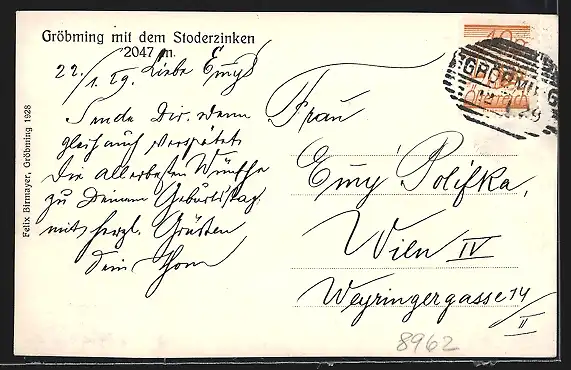 Gröbming mit dem Stoderzinken
2047 m.
22./1. 29. Liebe Emy!
Sende Dir, wenn
gleich auch verspätet
die allerbesten Wünsche
zu Deinem Geburtstag.
mit herzl. Grüssen
Dein
Frau
Emy Polifka,
Wien IV
Weyringergasse 14/II
8962
Felix Birmayer, Gröbming 1928
GRÖBMING